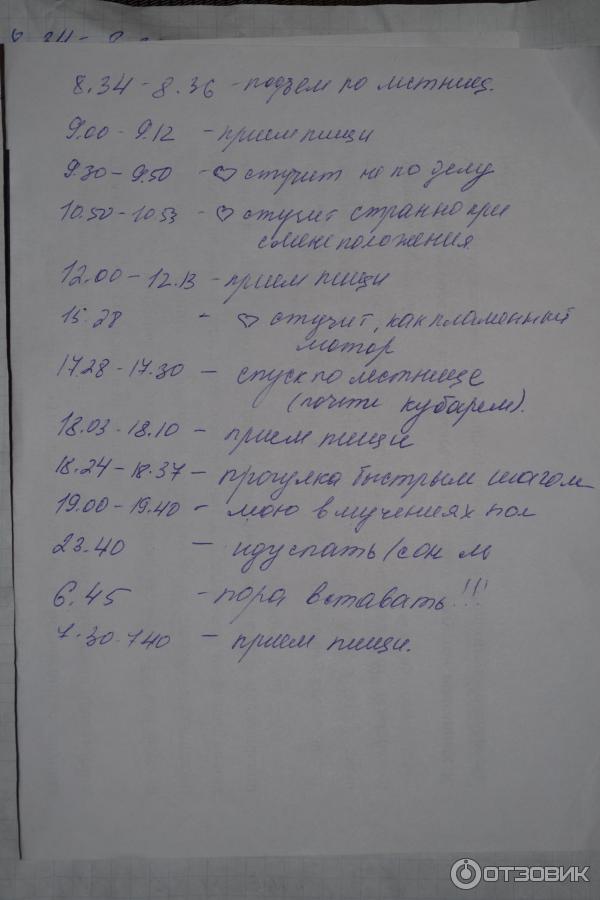 8.34 - 8.36 - подъем по лестниц.
9.00 - 9.12 - прием пищи
9.30 - 9.50 - ♡ стучит не по делу
10.50 - 10.53 - ♡ стучит странно при
смене положения
12.00 - 12.13 - прием пищи
15.28 - ♡ стучит, как пламенный
мотор
17.28 - 17.30 - спуск по лестнице
(почти кубарем).
18.03 - 18.10 - прием пищи
18.24 - 18.37 - прогулка быстрым шагом
19.00 - 19.40 - мою в мучениях пол
23.40 - иду спать/сон
6.45 - пора вставать!!!
7.30-7.40 - прием пищи.
ОТЗОВИК